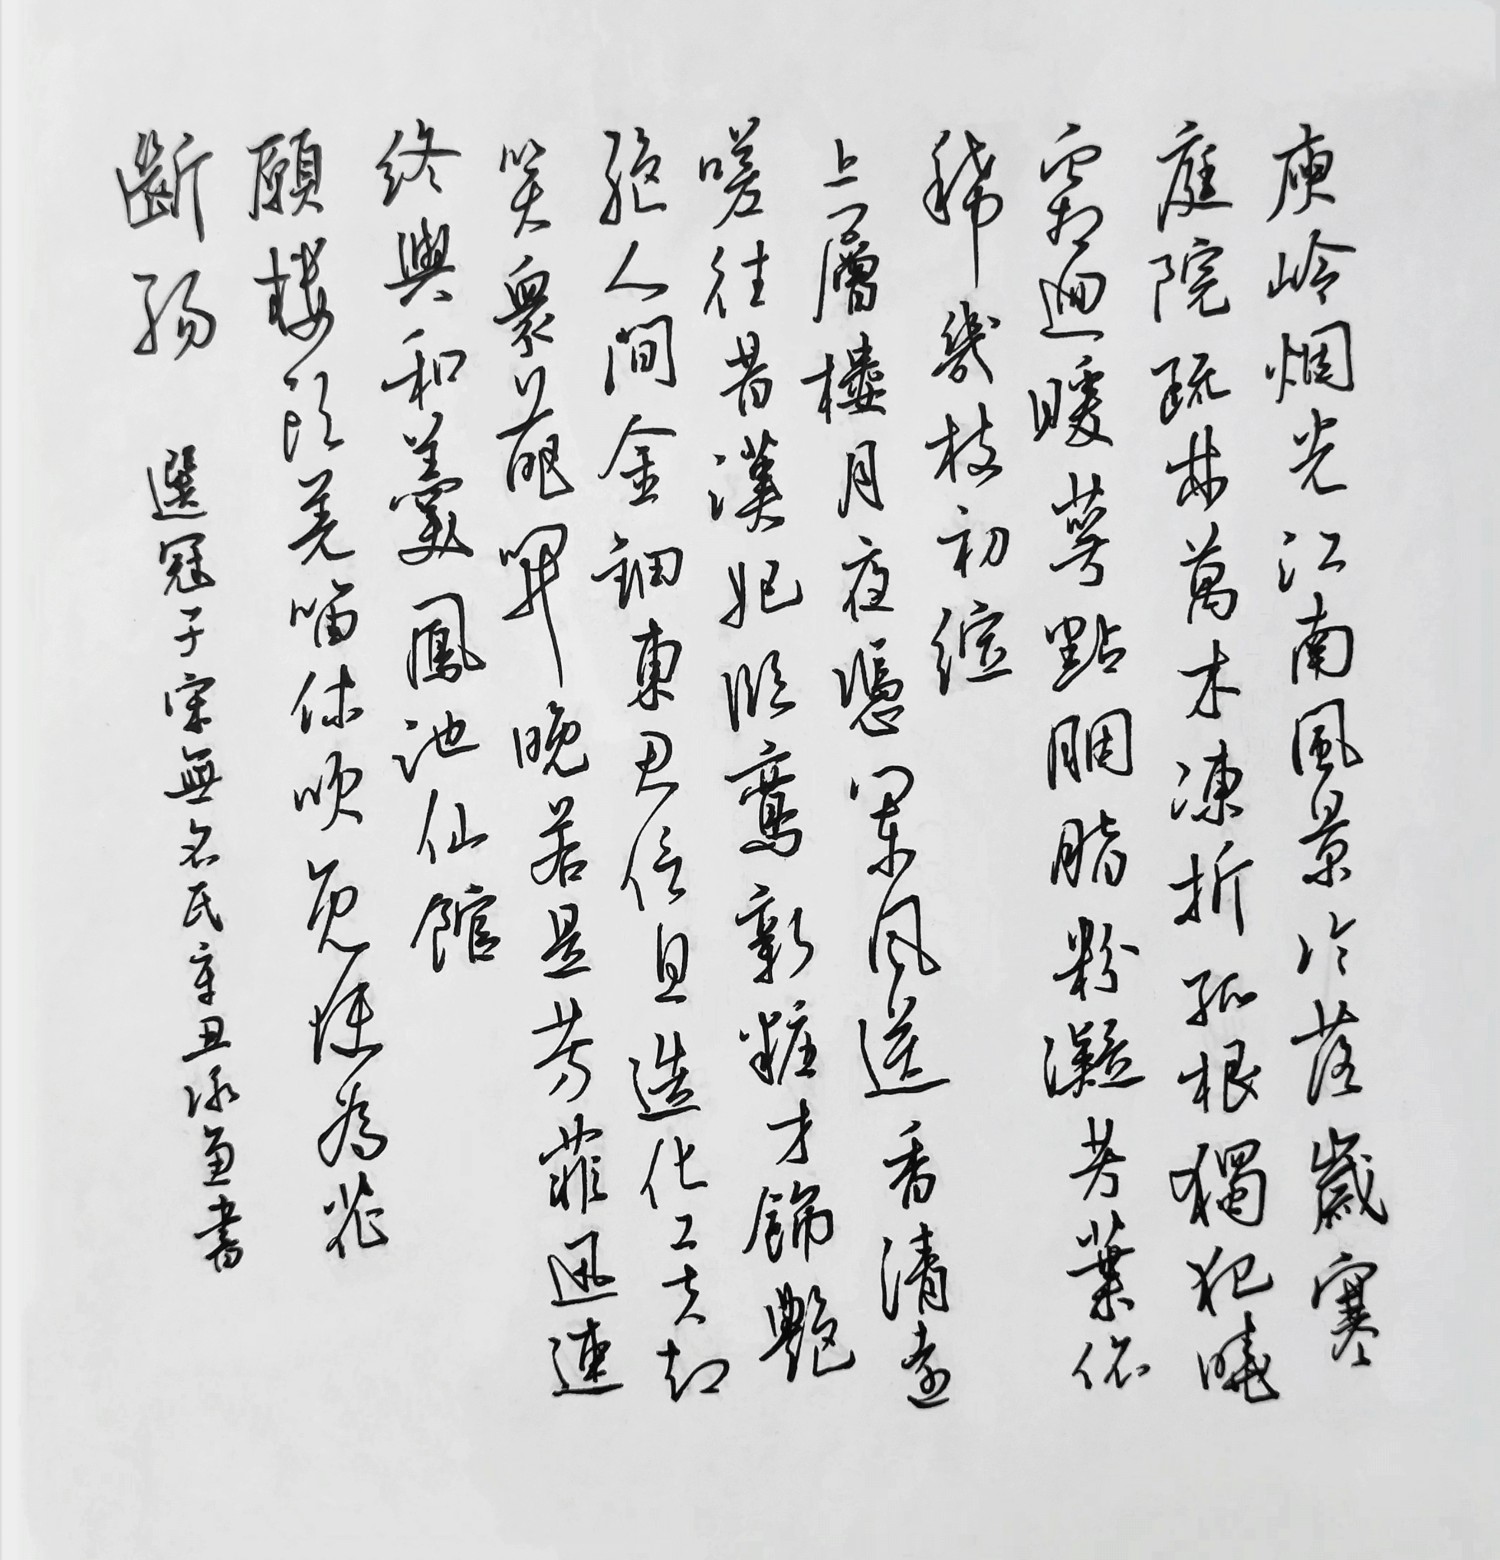 庾岭烟光江南風景冷落歲寒
庭院疏林萬木凍折孤根獨犯曉
霜迴暖萼點胭脂粉凝芳葉依
稀幾枝初綻
上層樓月夜憑闌風送香清遠
嗟往昔漢妃臨鸞新粧才飾艷
絕人間金鈿東君信且造化工夫却
笑衆葩開晚若是芳菲迅速
終與和羹鳳池仙館
願樓頭羌笛休吹免使為花
斷腸 選冠子宋無名氏辛丑永魚書